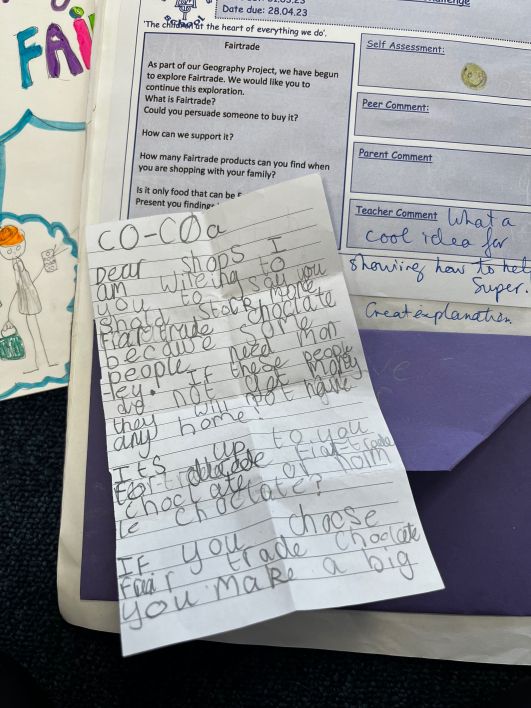 FAI
Date due: 28.04.23
'The children at the heart of everything we do'.
Fairtrade
As part of our Geography Project, we have begun
to explore Fairtrade. We would like you to
continue this exploration.
What is Fairtrade?
Could you persuade someone to buy it?
How can we support it?
How many Fairtrade products can you find when
you are shopping with your family?
Is it only food that can be
Present you finding
Self Assessment:
Peer Comment:
Parent Comment
Teacher Comment What a
cool idea for
showing how to help
Super.
Great explanation.
CO-COa
Dear shops I
am wireing to
you to say you
shold stock more
Fiartrade choclate
because some
people need mon
-ley. If these people
do not get money
they will not have
any home.
Its up to you
choclate or norm
le choclate?
If you choose
Fair trade choclate
you make a big